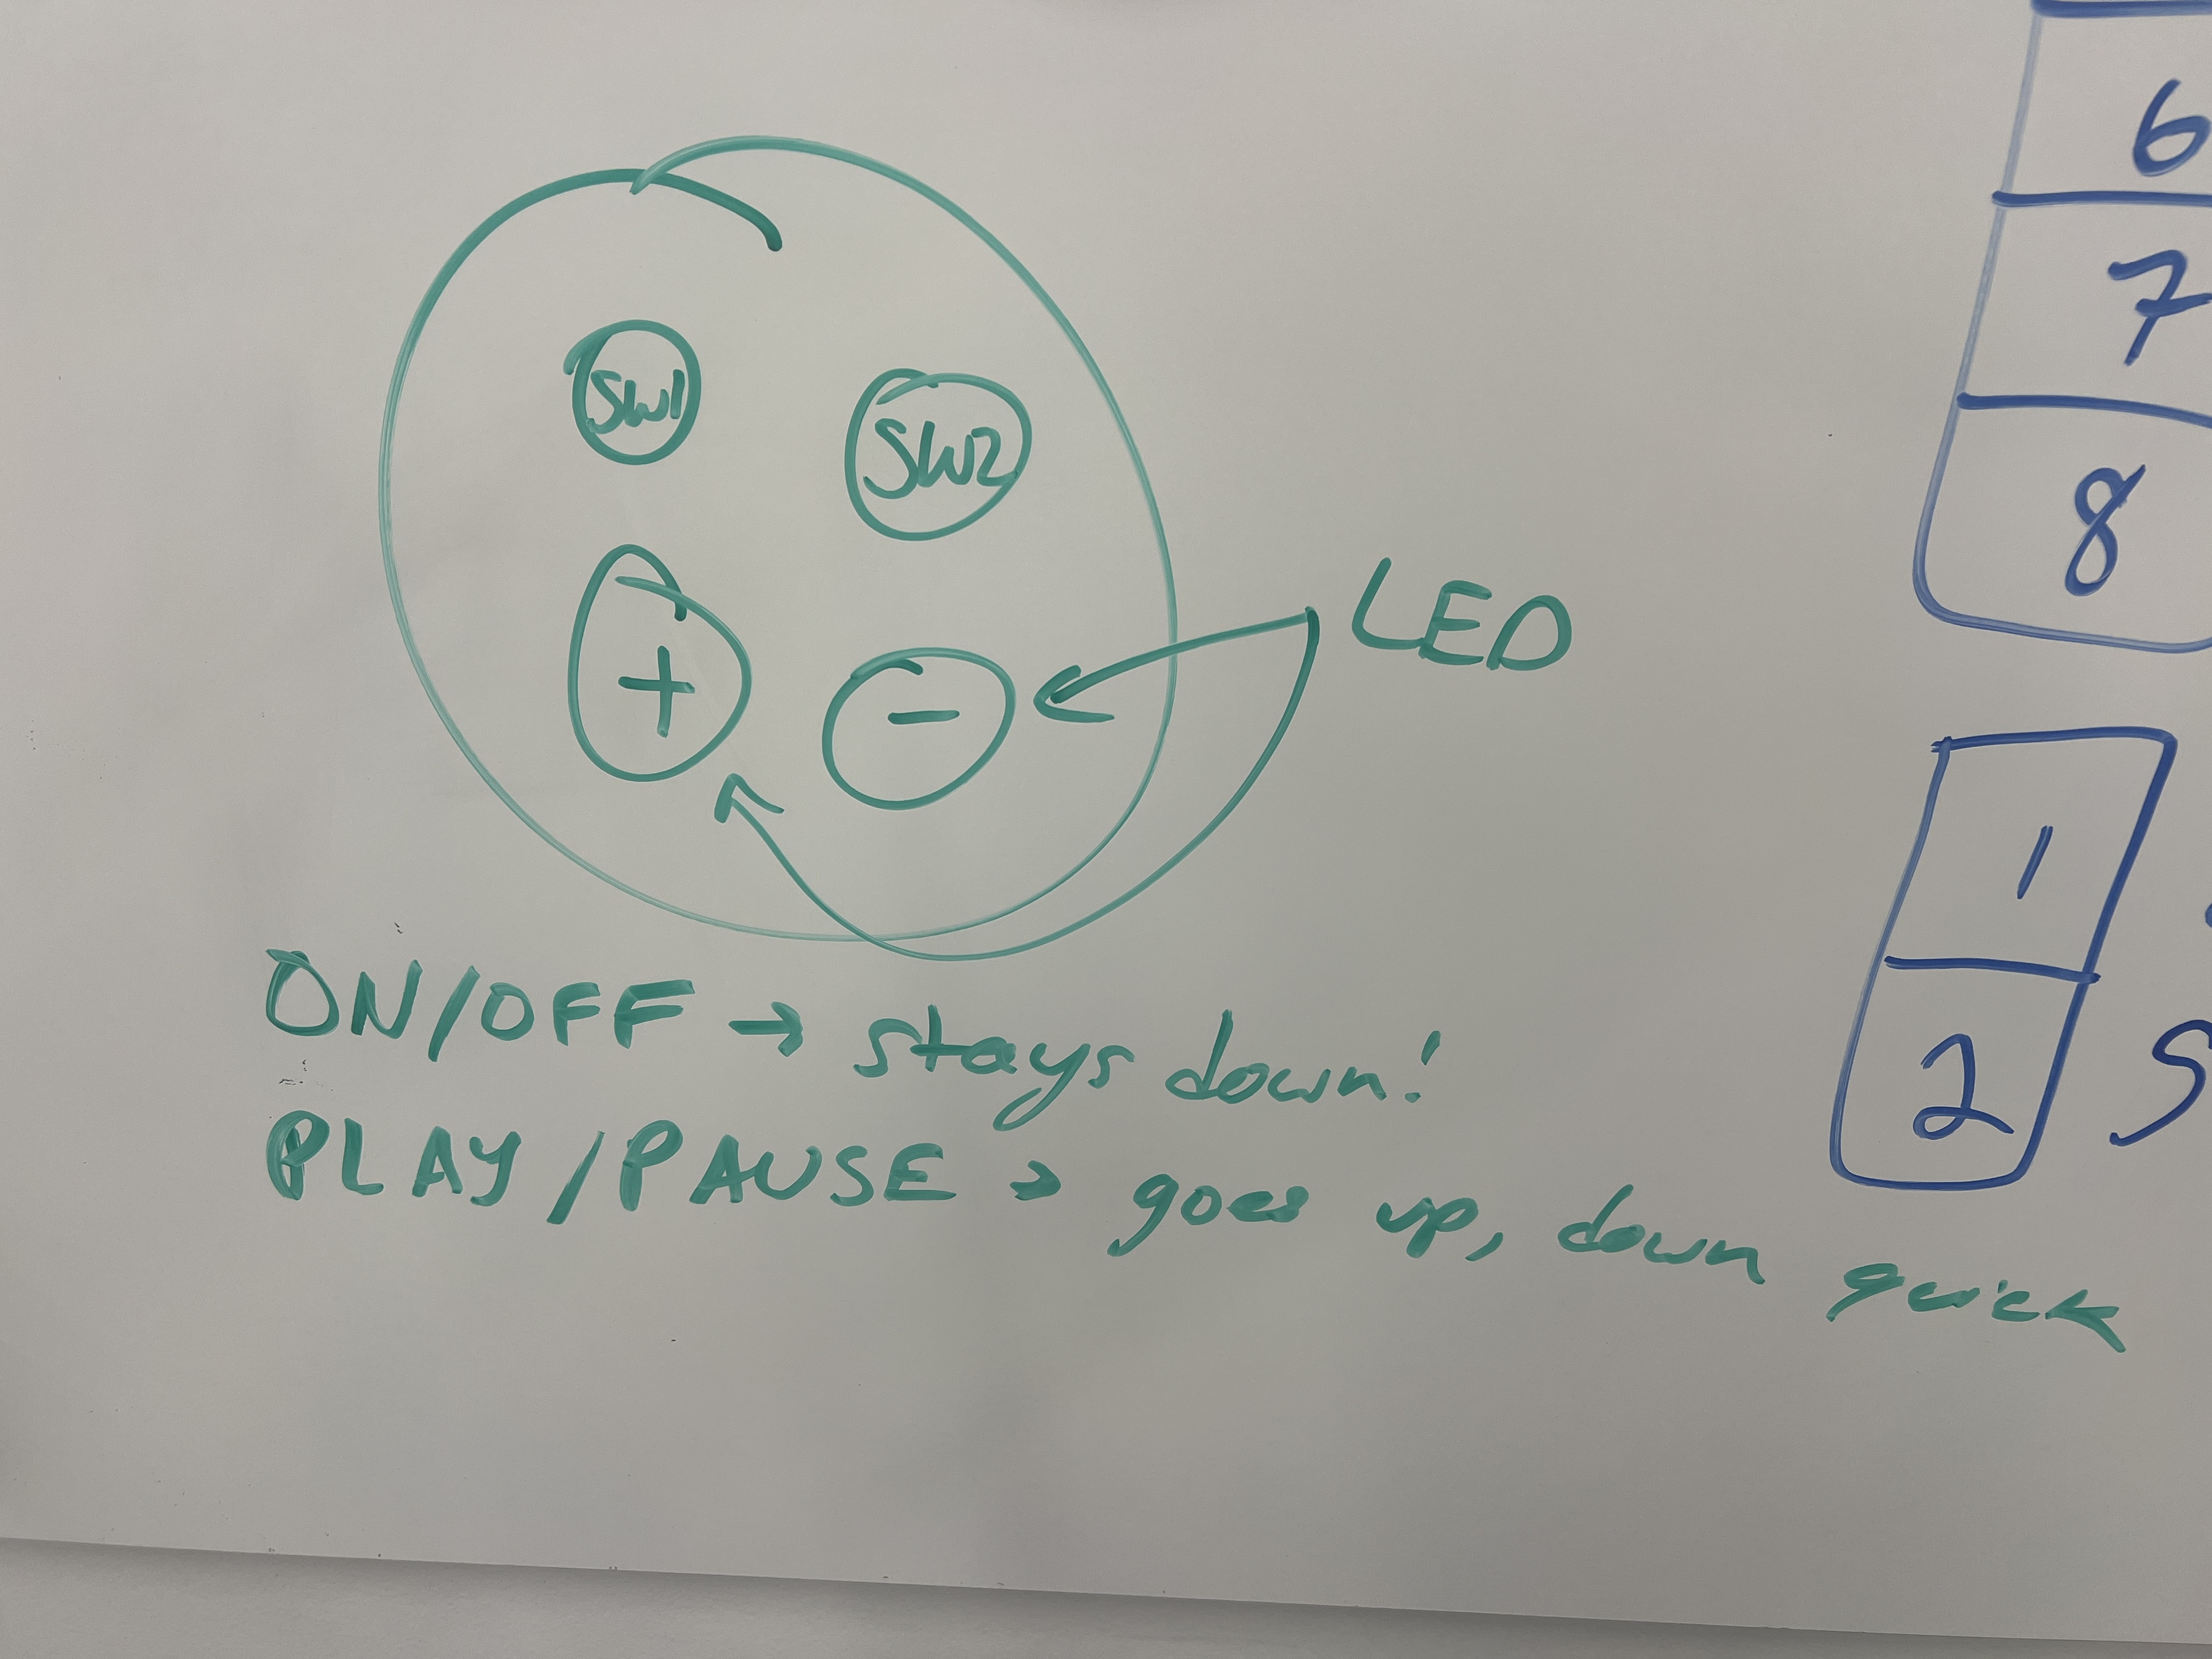 SW1
SW2
+
-
LED
ON/OFF → stays down!
PLAY/PAUSE → goes up, down quick
6
7
8
1
2 S